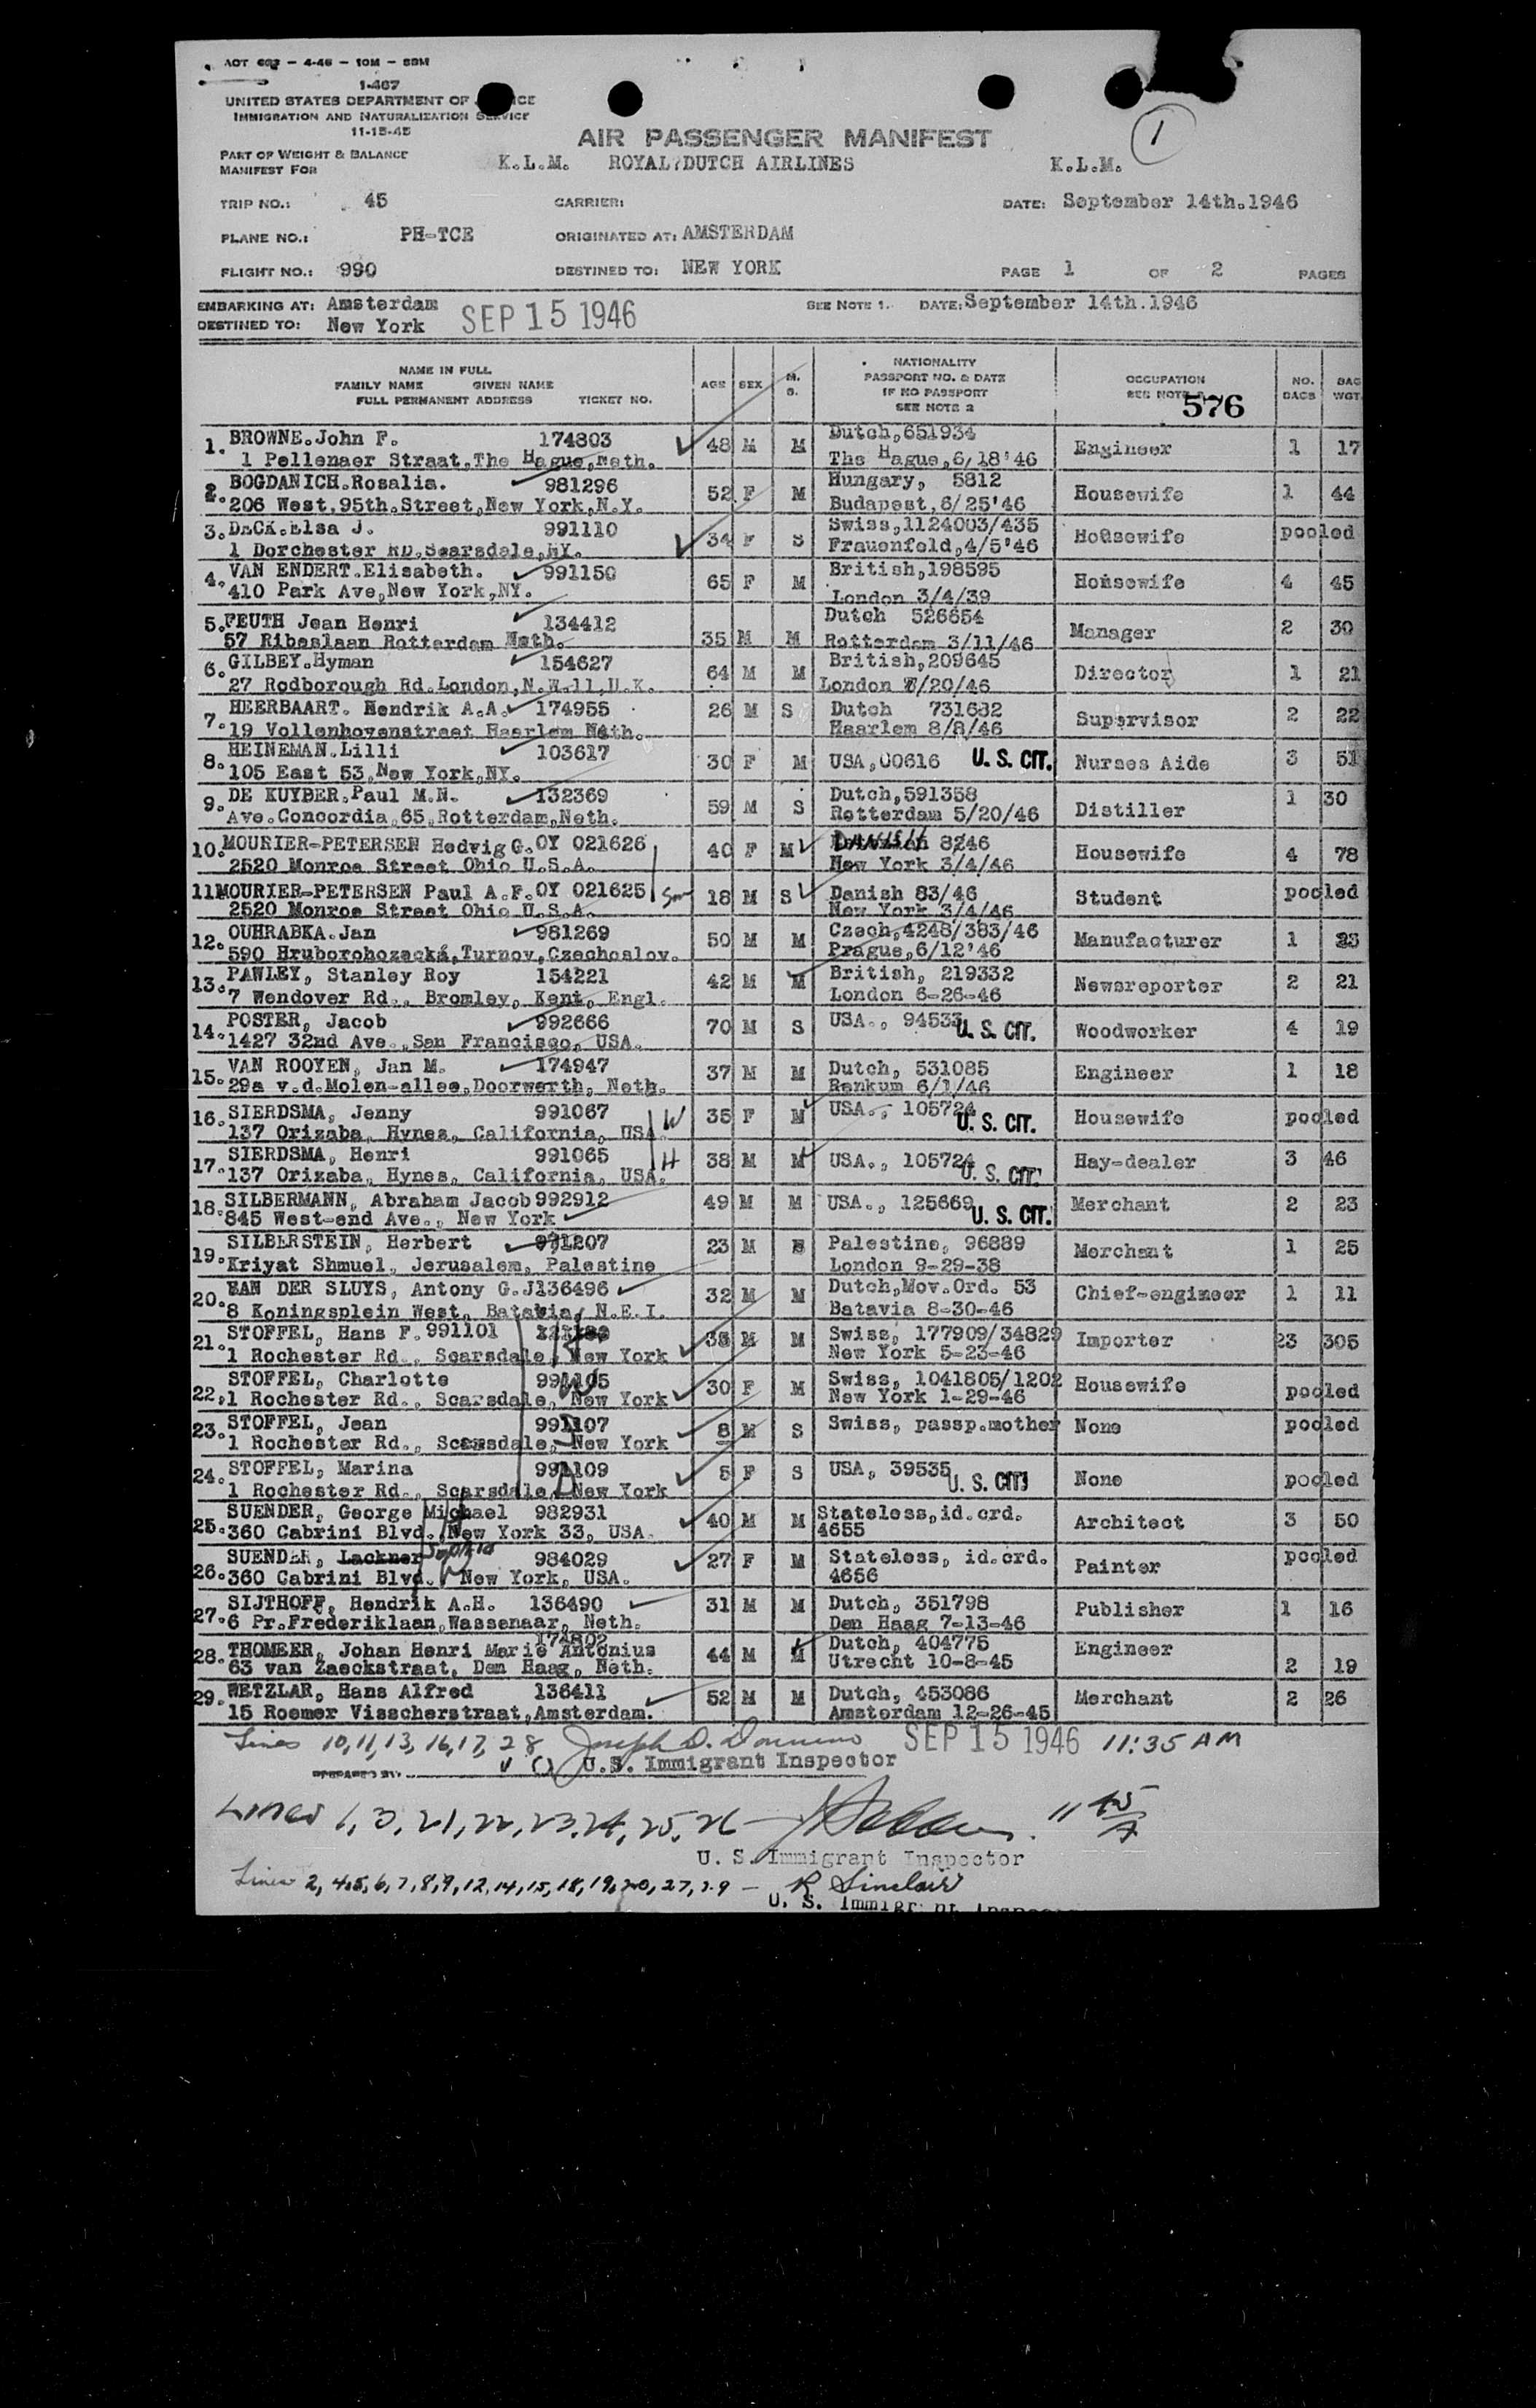 1-467
UNITED STATES DEPARTMENT OF
IMMIGRATION AND NATURALIZATION SERVICE
11-15-45
AIR PASSENGER MANIFEST
1
PART OF WEIGHT & BALANCE
MANIFEST FOR
K.L.M. ROYAL DUTCH AIRLINES K.L.M.
TRIP NO.: 45 CARRIER: DATE: September 14th.1946
PLANE NO.: PH-TCE ORIGINATED AT: AMSTERDAM
FLIGHT NO.: 990 DESTINED TO: NEW YORK PAGE 1 OF 2 PAGES
EMBARKING AT: Amsterdam SEE NOTE 1. DATE: September 14th.1946
DESTINED TO: New York SEP 15 1946
NAME IN FULL
FAMILY NAME GIVEN NAME
FULL PERMANENT ADDRESS TICKET NO.
AGE SEX M. S.
NATIONALITY
PASSPORT NO. & DATE
IF NO PASSPORT
SEE NOTE 2
OCCUPATION
SEE NOTE
576
NO. BAGS BAG WGT.
1. BROWNE.John F. 174803 48 M M Dutch,651934 Engineer 1 17
1 Pellenaer Straat,The Hague,Neth. The Hague,6/18'46
2. BOGDANICH.Rosalia. 981296 52 F M Hungary, 5812 Housewife 1 44
206 West,95th.Street,New York,N.Y. Budapest,6/25'46
3. Elsa J. 991110 34 F S Swiss,1124003/435 Housewife pooled
1 Dorchester RD.Scarsdale,NY. Frauenfeld,4/5'46
4. VAN ENDERT.Elisabeth. 991150 65 F M British,198595 Housewife 4 45
410 Park Ave,New York,NY. London 3/4/39
5. FEUTH Jean Henri 134412 35 M M Dutch 526854 Manager 2 30
57 Ribeslaan Rotterdam Neth. Rotterdam 3/11/46
6. GILBEY.Hyman 154627 64 M M British,209645 Director 1 21
27 Rodborough Rd.London,N.W.11,U.K. London 7/20/46
7. HEERBAART. Hendrik A.A. 174955 26 M S Dutch 731632 Supervisor 2 22
19 Vollenhovenstreet Haarlem Neth. Haarlem 8/8/46
8. HEINEMAN.Lilli 103617 30 F M USA,00616 U. S. CIT. Nurses Aide 3 51
105 East 53,New York,NY.
9. DE KUYBER.Paul M.N. 132369 59 M S Dutch,591358 Distiller 1 30
Ave.Concordia,65,Rotterdam,Neth. Rotterdam 5/20/46
10. MOURIER-PETERSEN Hedvig G. OY 021626 40 F M DANISH 8246 Housewife 4 78
2520 Monroe Street Ohio U.S.A. New York 3/4/46
11 MOURIER-PETERSEN Paul A.F. OY 021625 Son 18 M S Danish 83/46 Student pooled
2520 Monroe Street Ohio U.S.A. New York 3/4/46
12. OUHRABKA.Jan 981269 50 M M Czech,4248/383/46 Manufacturer 1
590 Hruborohozecká,Turnov,Czechoslov. Prague,6/12'46
13. PAWLEY, Stanley Roy 154221 42 M M British, 219332 Newsreporter 2 21
7 Wendover Rd., Bromley, Kent, Engl. London 6-26-46
14. POSTER, Jacob 992666 70 M S USA., 94533 U. S. CIT. Woodworker 4 19
1427 32nd Ave., San Francisco, USA.
15. VAN ROOYEN, Jan M. 174947 37 M M Dutch, 531085 Engineer 1 18
29a v.d.Molen-allee,Doorwerth, Neth. Renkum 6/1/46
16. SIERDSMA, Jenny 991067 W 35 F M USA., 105724 U. S. CIT. Housewife pooled
137 Orizaba, Hynes, California, USA.
17. SIERDSMA, Henri 991065 H 38 M M USA., 105724 U. S. CIT. Hay-dealer 3 46
137 Orizaba, Hynes, California, USA.
18. SILBERMANN, Abraham Jacob 992912 49 M M USA., 125669 U. S. CIT. Merchant 2 23
845 West-end Ave., New York
19. SILBERSTEIN, Herbert 991207 23 M S Palestine, 96889 Merchant 1 25
Kriyat Shmuel, Jerusalem, Palestine London 9-29-38
20. VAN DER SLUYS, Antony G.J 136496 32 M M Dutch,Mov.Ord. 53 Chief-engineer 1 11
8 Koningsplein West, Batavia, N.E.I. Batavia 8-30-46
21. STOFFEL, Hans F. 991101 H 38 M M Swiss, 177909/34829 Importer 23 305
1 Rochester Rd., Scarsdale, New York New York 5-23-46
22. STOFFEL, Charlotte 991105 W 30 F M Swiss, 1041805/1202 Housewife pooled
1 Rochester Rd., Scarsdale, New York New York 1-29-46
23. STOFFEL, Jean 991107 S 8 M S Swiss, passp.mother None pooled
1 Rochester Rd., Scarsdale, New York
24. STOFFEL, Marina 991109 D 5 F S USA, 39535 U. S. CIT. None pooled
1 Rochester Rd., Scarsdale, New York
25. SUENDER, George Michael 982931 H 40 M M Stateless,id.crd. Architect 3 50
360 Cabrini Blvd. New York 33, USA. 4655
26. SUENDER, Lackner Sophia 984029 W 27 F M Stateless, id.crd. Painter pooled
360 Cabrini Blvd. New York, USA. 4656
27. SIJTHOFF, Hendrik A.H. 136490 31 M M Dutch, 351798 Publisher 1 16
6 Pr.Frederiklaan,Wassenaar, Neth. Den Haag 7-13-46
174802
28. THOMEER, Johan Henri Marie Antonius 44 M M Dutch, 404775 Engineer 2 19
63 van Zaeckstraat, Den Haag, Neth. Utrecht 10-8-45
29. WETZLAR, Hans Alfred 136411 52 M M Dutch, 453086 Merchant 2 26
15 Roemer Visscherstraat,Amsterdam. Amsterdam 12-26-45
Lines 10,11,13,16,17,28 Joseph D. SEP 15 1946 11:35 AM
PREPARED BY U.S. Immigrant Inspector
Lines 1,3,21,22,23,24,25,26 - 11 45 A
U. S. Immigrant Inspector
Lines 2,4,5,6,7,8,9,12,14,15,18,19,20,27,29 - R Sinclair
U. S. Immigrant